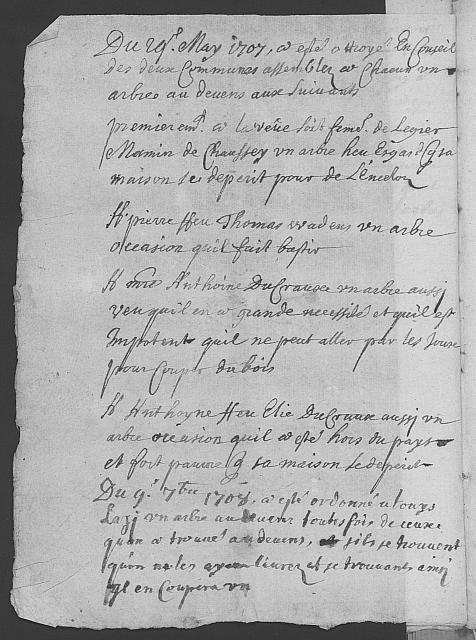 Du 29e. May 1707, a esté otroyé En Conseil
des deux Communes assemblez a Chacun un
arbre au devens aux suivants
premieremt. a la veüe soit feme. de Legier
Mamin de Chaussey un arbre heu Esgard q sa
maison se deperit pour de L'encelor
A pierre ffeu Thomas wadens un arbre
occasion quil fait bastir
A mre Anthoine DuCraux un arbre aussj
veu quil en a grande necessité et quil est
Impotent quil ne peut aller par les Joux
pour Couper du bois
A Anthoyne ffeu Elie DuCraux aussj un
arbre occasion quil a esté hors du pays
et fort pauvre q sa maison se deperit
Du 9e. 7bre 1707, a esté ordonné a Louys
un arbre au devens toutesfois de ceux
quon a trouvé au devens, sils se trouvent
quon ne les livrez et se trouvants ainsj
jl en Coupera un